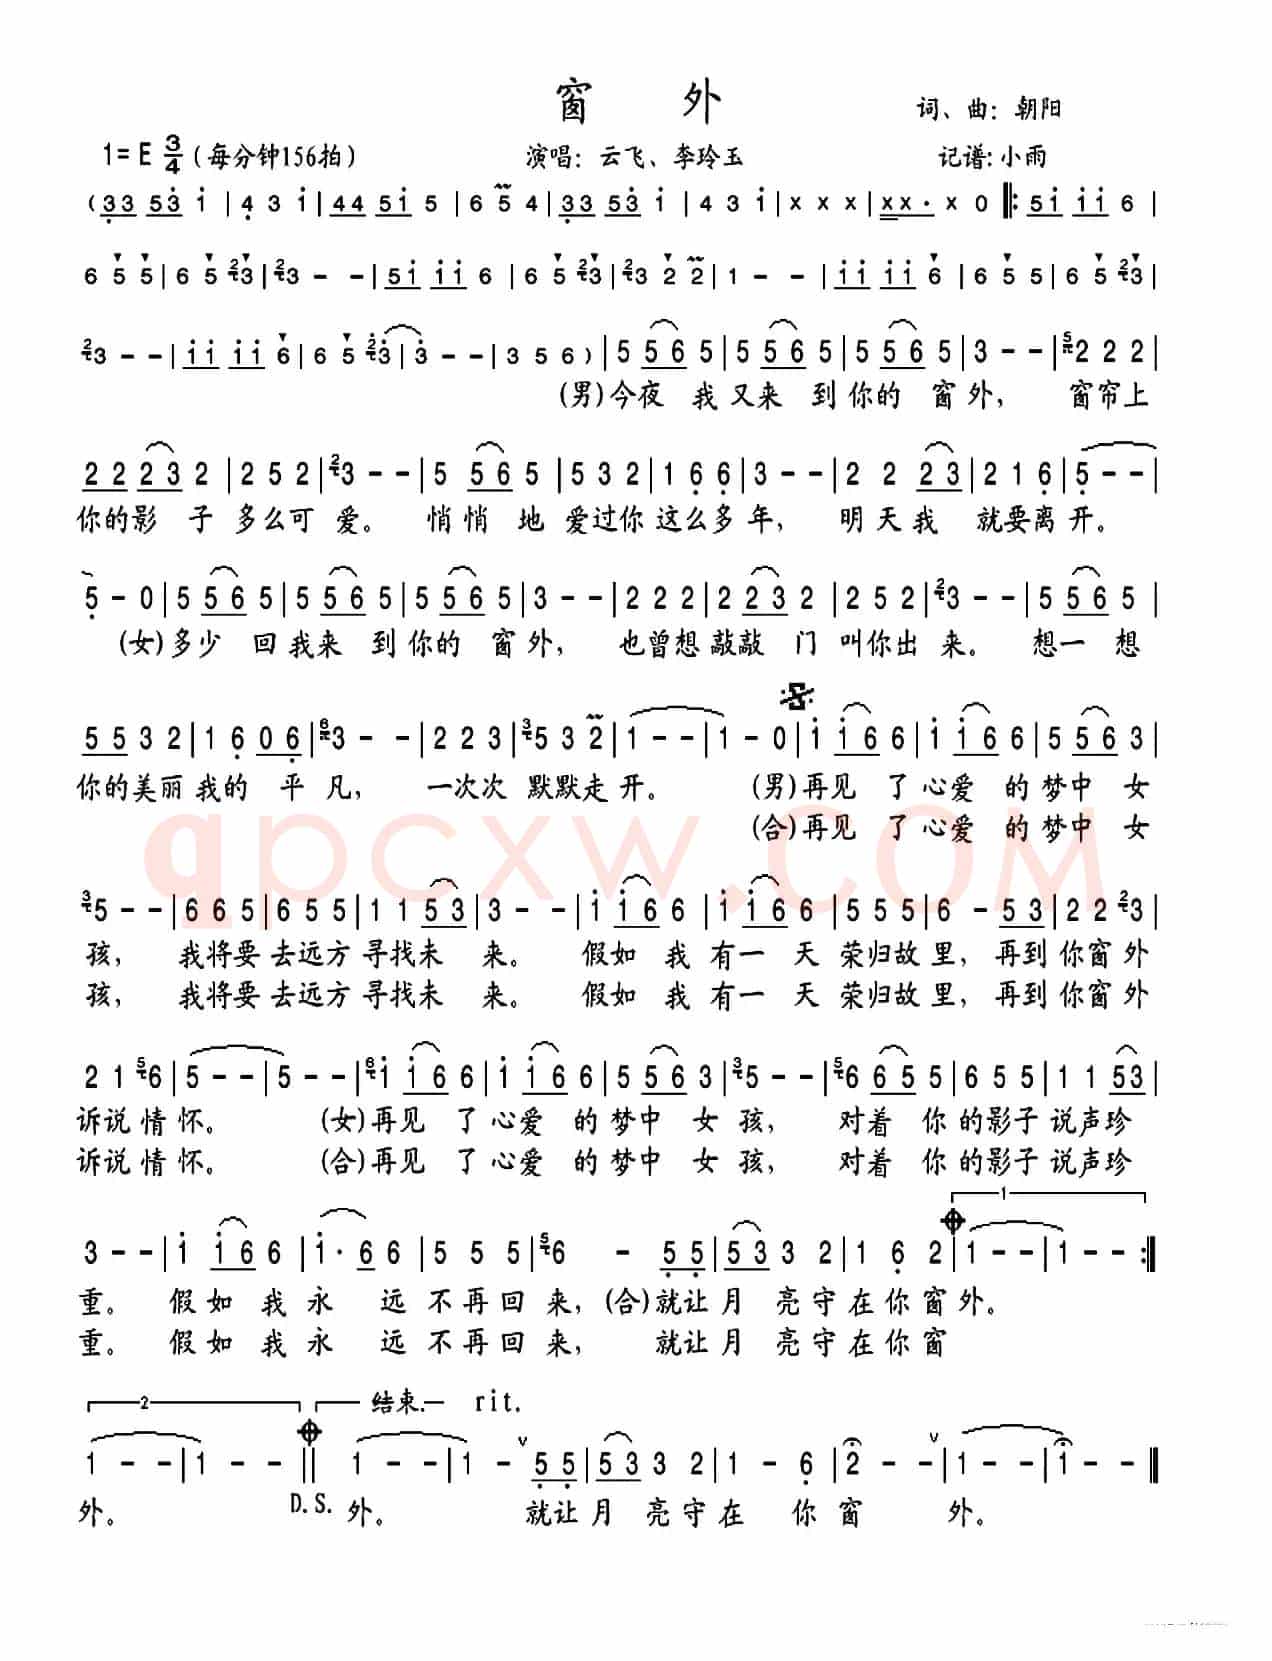 窗 外
词、曲：朝阳
1=E 3/4 (每分钟156拍)
演唱：云飞、李玲玉
记谱:小雨
(33 53 1 | 4 3 1 | 44 51 5 | 6 5 4 | 33 53 1 | 4 3 1 | x x x | xx· x 0 |: 51 11 6 |
6 5 5 | 6 5 23 | 23 - - | 51 11 6 | 6 5 23 | 23 2 2 | 1 - - | 11 11 6 | 6 5 5 | 6 5 23 |
23 - - | 11 11 6 | 6 5 23 | 3 - - | 3 5 6 ) | 5 56 5 | 5 56 5 | 5 56 5 | 3 - - | 52 2 2 |
(男)今夜 我又来 到你的 窗外， 窗帘上
22 23 2 | 2 5 2 | 23 - - | 5 56 5 | 5 3 2 | 1 6 6 | 3 - - | 2 2 23 | 2 1 6 | 5 - - |
你的影 子 多么可 爱。 悄悄 地 爱过你 这么多 年， 明天我 就要离 开。
5 - 0 | 5 56 5 | 5 56 5 | 5 56 5 | 3 - - | 2 2 2 | 2 23 2 | 2 5 2 | 23 - - | 5 56 5 |
(女)多少 回我来 到你的 窗外， 也曾想 敲敲 门 叫你出 来。 想一 想
55 3 2 | 1 6 06 | 63 - - | 2 2 3 | 35 3 2 | 1 - - | 1 - 0 | 1 16 6 | 1 16 6 | 5 56 3 |
你的美丽 我的 平 凡， 一次次 默默走 开。 (男)再见 了 心爱 的 梦中 女
(合)再见 了 心爱 的 梦中 女
qpcxw.COM
35 - - | 6 6 5 | 6 5 5 | 1 1 53 | 3 - - | 1 16 6 | 1 16 6 | 5 5 5 | 6 - 53 | 2 2 23 |
孩， 我将要 去远方 寻找未 来。 假如 我 有一 天 荣归故 里， 再到 你窗外
孩， 我将要 去远方 寻找未 来。 假如 我 有一 天 荣归故 里， 再到 你窗外
2 1 56 | 5 - - | 5 - - | 61 16 6 | 1 16 6 | 5 56 3 | 35 - - | 56 65 5 | 6 5 5 | 1 1 53 |
诉说 情 怀。 (女)再见 了 心爱 的 梦中 女 孩， 对着 你 的影子 说声珍
诉说 情 怀。 (合)再见 了 心爱 的 梦中 女 孩， 对着 你 的影子 说声珍
1
3 - - | 1 16 6 | 1· 6 6 | 5 5 5 | 56 - 55 | 53 3 2 | 1 6 2 | 1 - - | 1 - - :|
重。 假如 我 永 远 不再回 来，(合)就让 月 亮守 在你 窗 外。
重。 假如 我 永 远 不再回 来， 就让 月 亮守 在你 窗
2 结束. rit.
1 - - | 1 - - || 1 - - | 1 - 55 | 53 3 2 | 1 - 6 | 2 - - | 1 - - | 1 - - ||
外。 D.S. 外。 就让 月 亮守 在 你 窗 外。